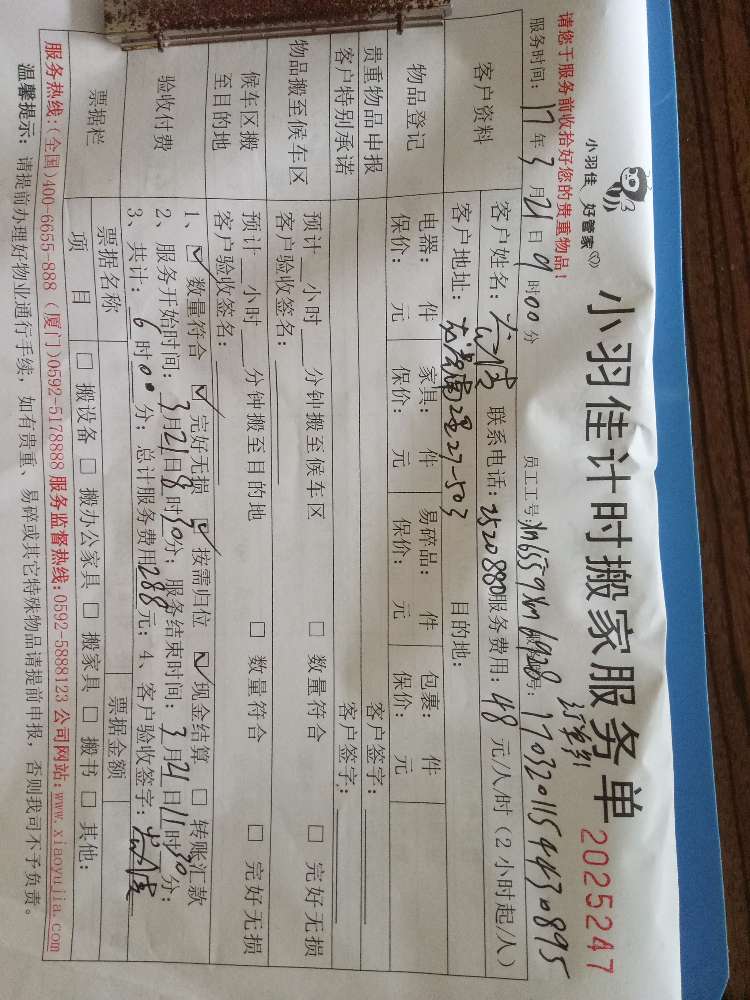 小羽佳 好管家
小羽佳计时搬家服务单
2025247
请您于服务前收拾好您的贵重物品!
服务时间: 17 年 3 月 21 日 9 时 00 分 员工工号: 订单编号: 17032011544430895
客户资料
客户姓名: 联系电话: 2520880 服务费用: 48 元/人/时 (2小时起/人)
客户地址: 27-503 目的地:
物品登记
电器: 件 家具: 件 易碎品: 件 包裹: 件
保价: 元 保价: 元 保价: 元 保价: 元
贵重物品申报 客户签字:
客户特别承诺 客户签字:
物品搬至候车区
预计 小时 分钟搬至候车区 □ 数量符合 □ 完好无损
客户验收签名:
候车区搬至目的地
预计 小时 分钟搬至目的地 □ 数量符合 □ 完好无损
客户验收签名:
验收付费
1、☑ 数量符合 ☑ 完好无损 ☑ 按需归位 ☑ 现金结算 □ 转账汇款
2、服务开始时间: 3月21日8时30分; 服务结束时间: 3月21日11时30分;
3、共计: 6时00分; 总计服务费用288元; 4、客户验收签字:
票据栏
票据名称 票据金额
项目 □ 搬设备 □ 搬办公家具 □ 搬家具 □ 搬书 □ 其他:
服务热线:(全国)400-6655-888 (厦门)0592-5178888 服务监督热线:0592-5888123 公司网站:www.xiaoyujia.com
温馨提示: 请提前办理好物业通行手续, 如有贵重、易碎或其它特殊物品请提前申报, 否则我司不予负责。